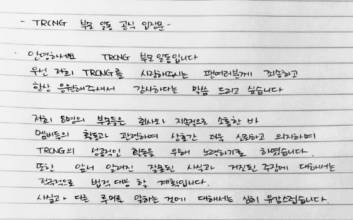 - TRCNG 부모 일동 공식 입장문 -
안녕하세요 TRCNG 부모 일동입니다
우선 저희 TRCNG를 사랑해주시는 팬여러분께 죄송하고
항상 응원해주셔서 감사하다는 말씀 드리고 싶습니다
저희 8명의 부모들은 회사와 지속적으로 소통한 바
멤버들의 활동과 관련하여 상호간 더욱 신뢰하고 의지하여
TRCNG의 성공적인 활동을 위해 노력하기로 하였습니다.
또한 앞서 알려진 잘못된 사실과 거짓된 주장에 대해서는
적극적으로 법적 대응 할 계획입니다.
사실과 다른 주장을 말하는 것에 대해서는 심히 유감스럽습니다